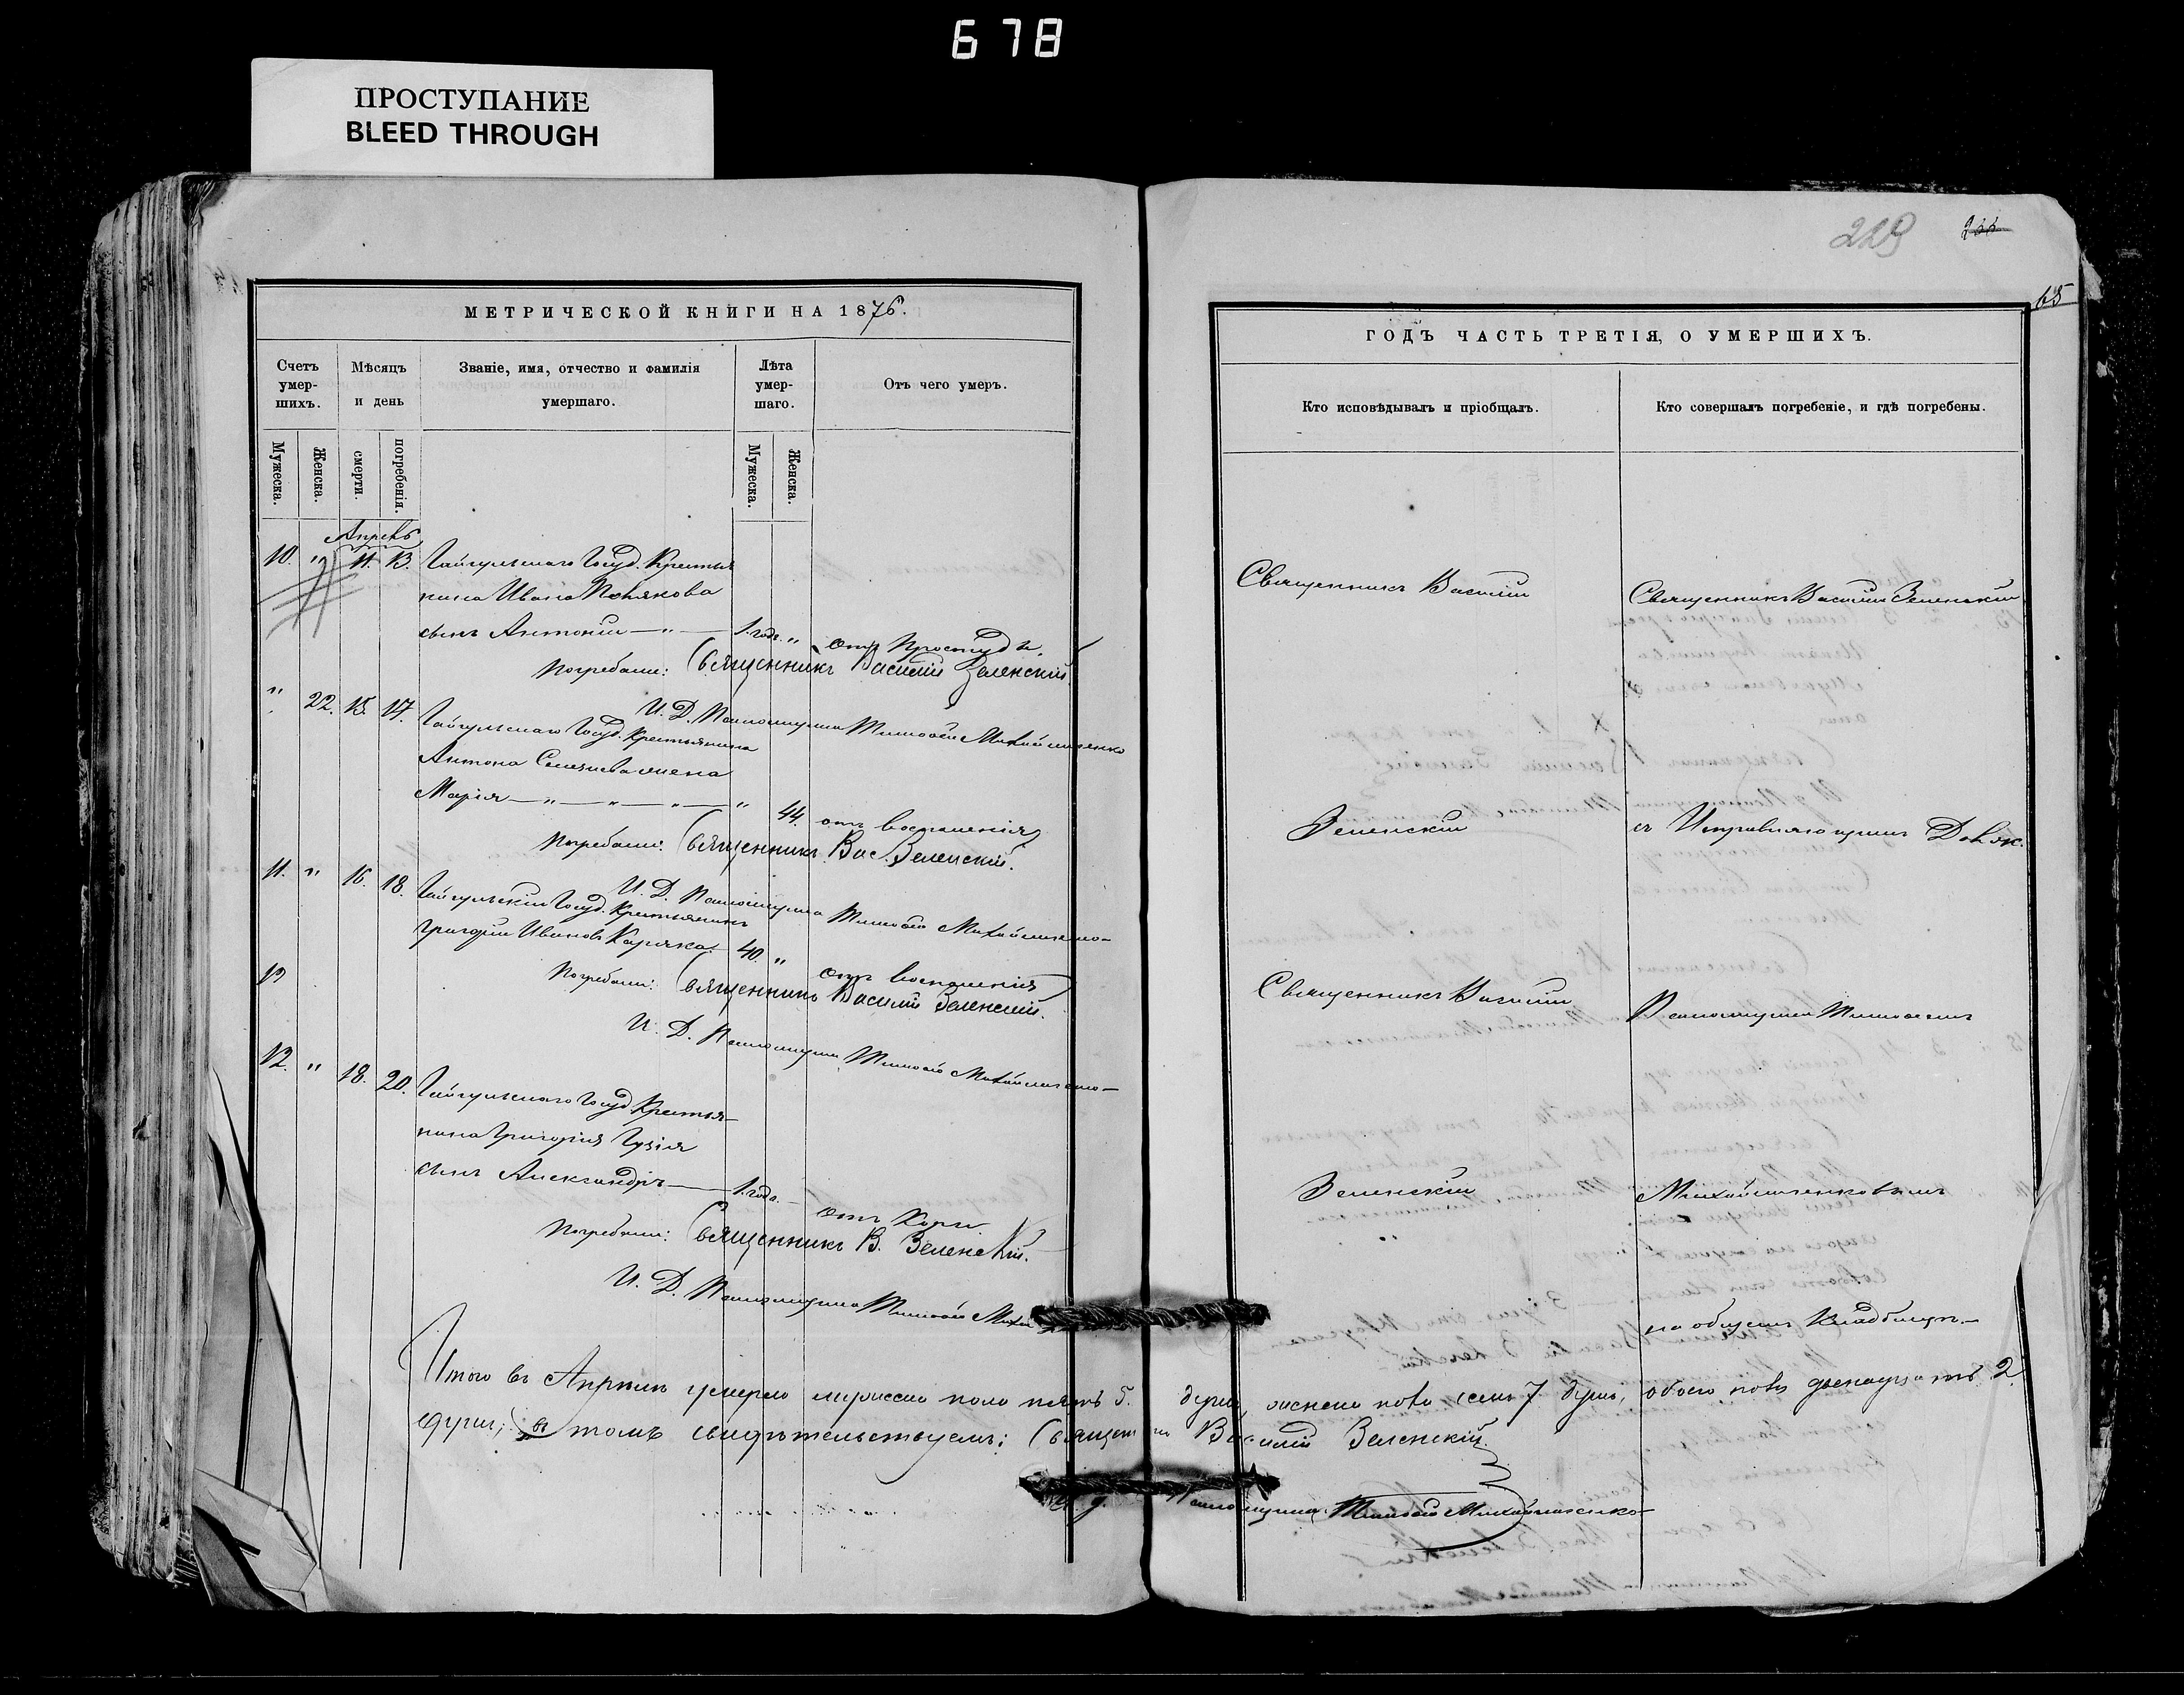 678
ПРОСТУПАНИЕ
BLEED THROUGH
229
65
МЕТРИЧЕСКОЙ КНИГИ НА 1876.
Счетъ умер-шихъ.
Мѣсяцъ и день
Званіе, имя, отчество и фамилія умершаго.
Лѣта умер-шаго.
Отъ чего умеръ.
Мужеска.
Женска.
смерти.
погребенія.
Мужеска.
Женска.
Апрель
10. " 11. 13. Государ. Крестья
нина Ивана Полякова
сынъ Антоній — " — 1. годъ. " отъ простуды.
Погребали: Священникъ Василій Зеленскій.
И. Д. Паламаря Тимофей Михайличенко
" 22. 15. 17. Госуд. Крестьянина
Антона жена
Марія — " — " — " — " 44. отъ воспаленія
Погребали: Священникъ Вас. Зеленскій.
И. Д. Тимофей Михайличенко
11. " 16. 18. Госуд. Крестьянинъ
Григорій Ивановъ 40. " отъ воспаленія
12
Погребали: Священникъ Василій Зеленскій.
И. Д. Тимофей Михайличенко
12. " 18. 20. Госуд. Крестья-
нина Григорія
сынъ Александръ — 1. года. — отъ Кори
Погребали: Священникъ В. Зеленскій.
И. Д. Тимофей
Итого въ Апрѣлѣ умерло мужеска пола пять 5.
душъ, въ томъ свидѣтельствуемъ: Священникъ
ГОДЪ ЧАСТЬ ТРЕТІЯ, О УМЕРШИХЪ.
Кто исповѣдывалъ и пріобщалъ.
Кто совершалъ погребеніе, и гдѣ погребены.
Священникъ Василій
Священникъ Василій Зеленскій
Зеленскій
съ Исправляющимъ Долж.
Священникъ Василій
Тимофеемъ
Зеленскій
Михайличенковымъ
на общемъ Кладбищѣ.—
душъ, женска пола семь 7 душъ, обоего пола двенадцать
Василій Зеленскій.
Тимофей Михайличенко